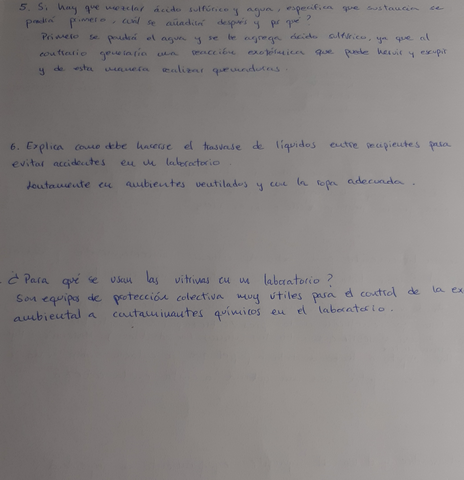 5. Si hay que mezclar ácido sulfúrico y agua, especifica que sustancia se
pondrá primero, cuál se añadirá después y por qué?
Primero se pondrá el agua y se le agrega ácido sulfúrico, ya que al
contrario generaría una reacción exotérmica que puede hervir y
y de esta manera realizar quemaduras.
6. Explica como debe hacerse el trasvase de líquidos entre recipientes para
evitar accidentes en un laboratorio.
Lentamente en ambientes ventilados y con la ropa adecuada.
¿Para qué se usan las vitrinas en un laboratorio?
Son equipos de protección colectiva muy útiles para el control de la ex
ambiental a contaminantes químicos en el laboratorio.